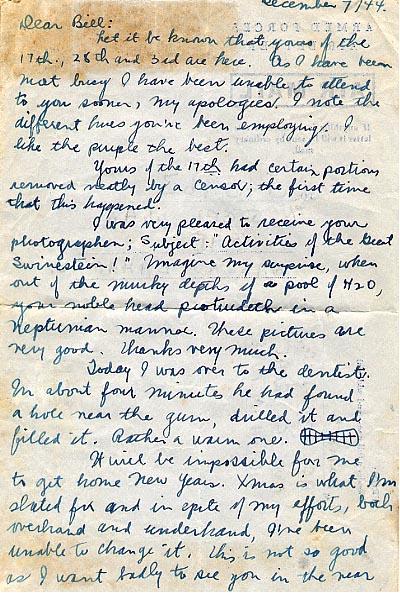 December 7/44.
Dear Bill:
Let it be known that yours of the
17th., 28th and 3rd are here. As I have been
most busy I have been unable to attend
to you sooner, my apologies. I note the
different hues you've been employing. I
like the purple the best.
Yours of the 17th had certain portions
removed neatly by a censor; the first time
that this happened.
I was very pleased to receive your
photographs; Subject: "Activities of the Great
Swinestein!" Imagine my surprise, when
out of the murky depths of a pool of H2O,
your noble head protrudeth in a
Neptunian manner. These pictures are
very good. Thanks very much.
Today I was over to the dentist.
In about four minutes he had found
a hole near the gum, drilled it and
filled it. Rather a warm one.
It will be impossible for me
to get home New Years. Xmas is what I'm
slated for and in spite of my efforts, both
overhand and underhand, I've been
unable to change it. This is not so good
as I want badly to see you in the near